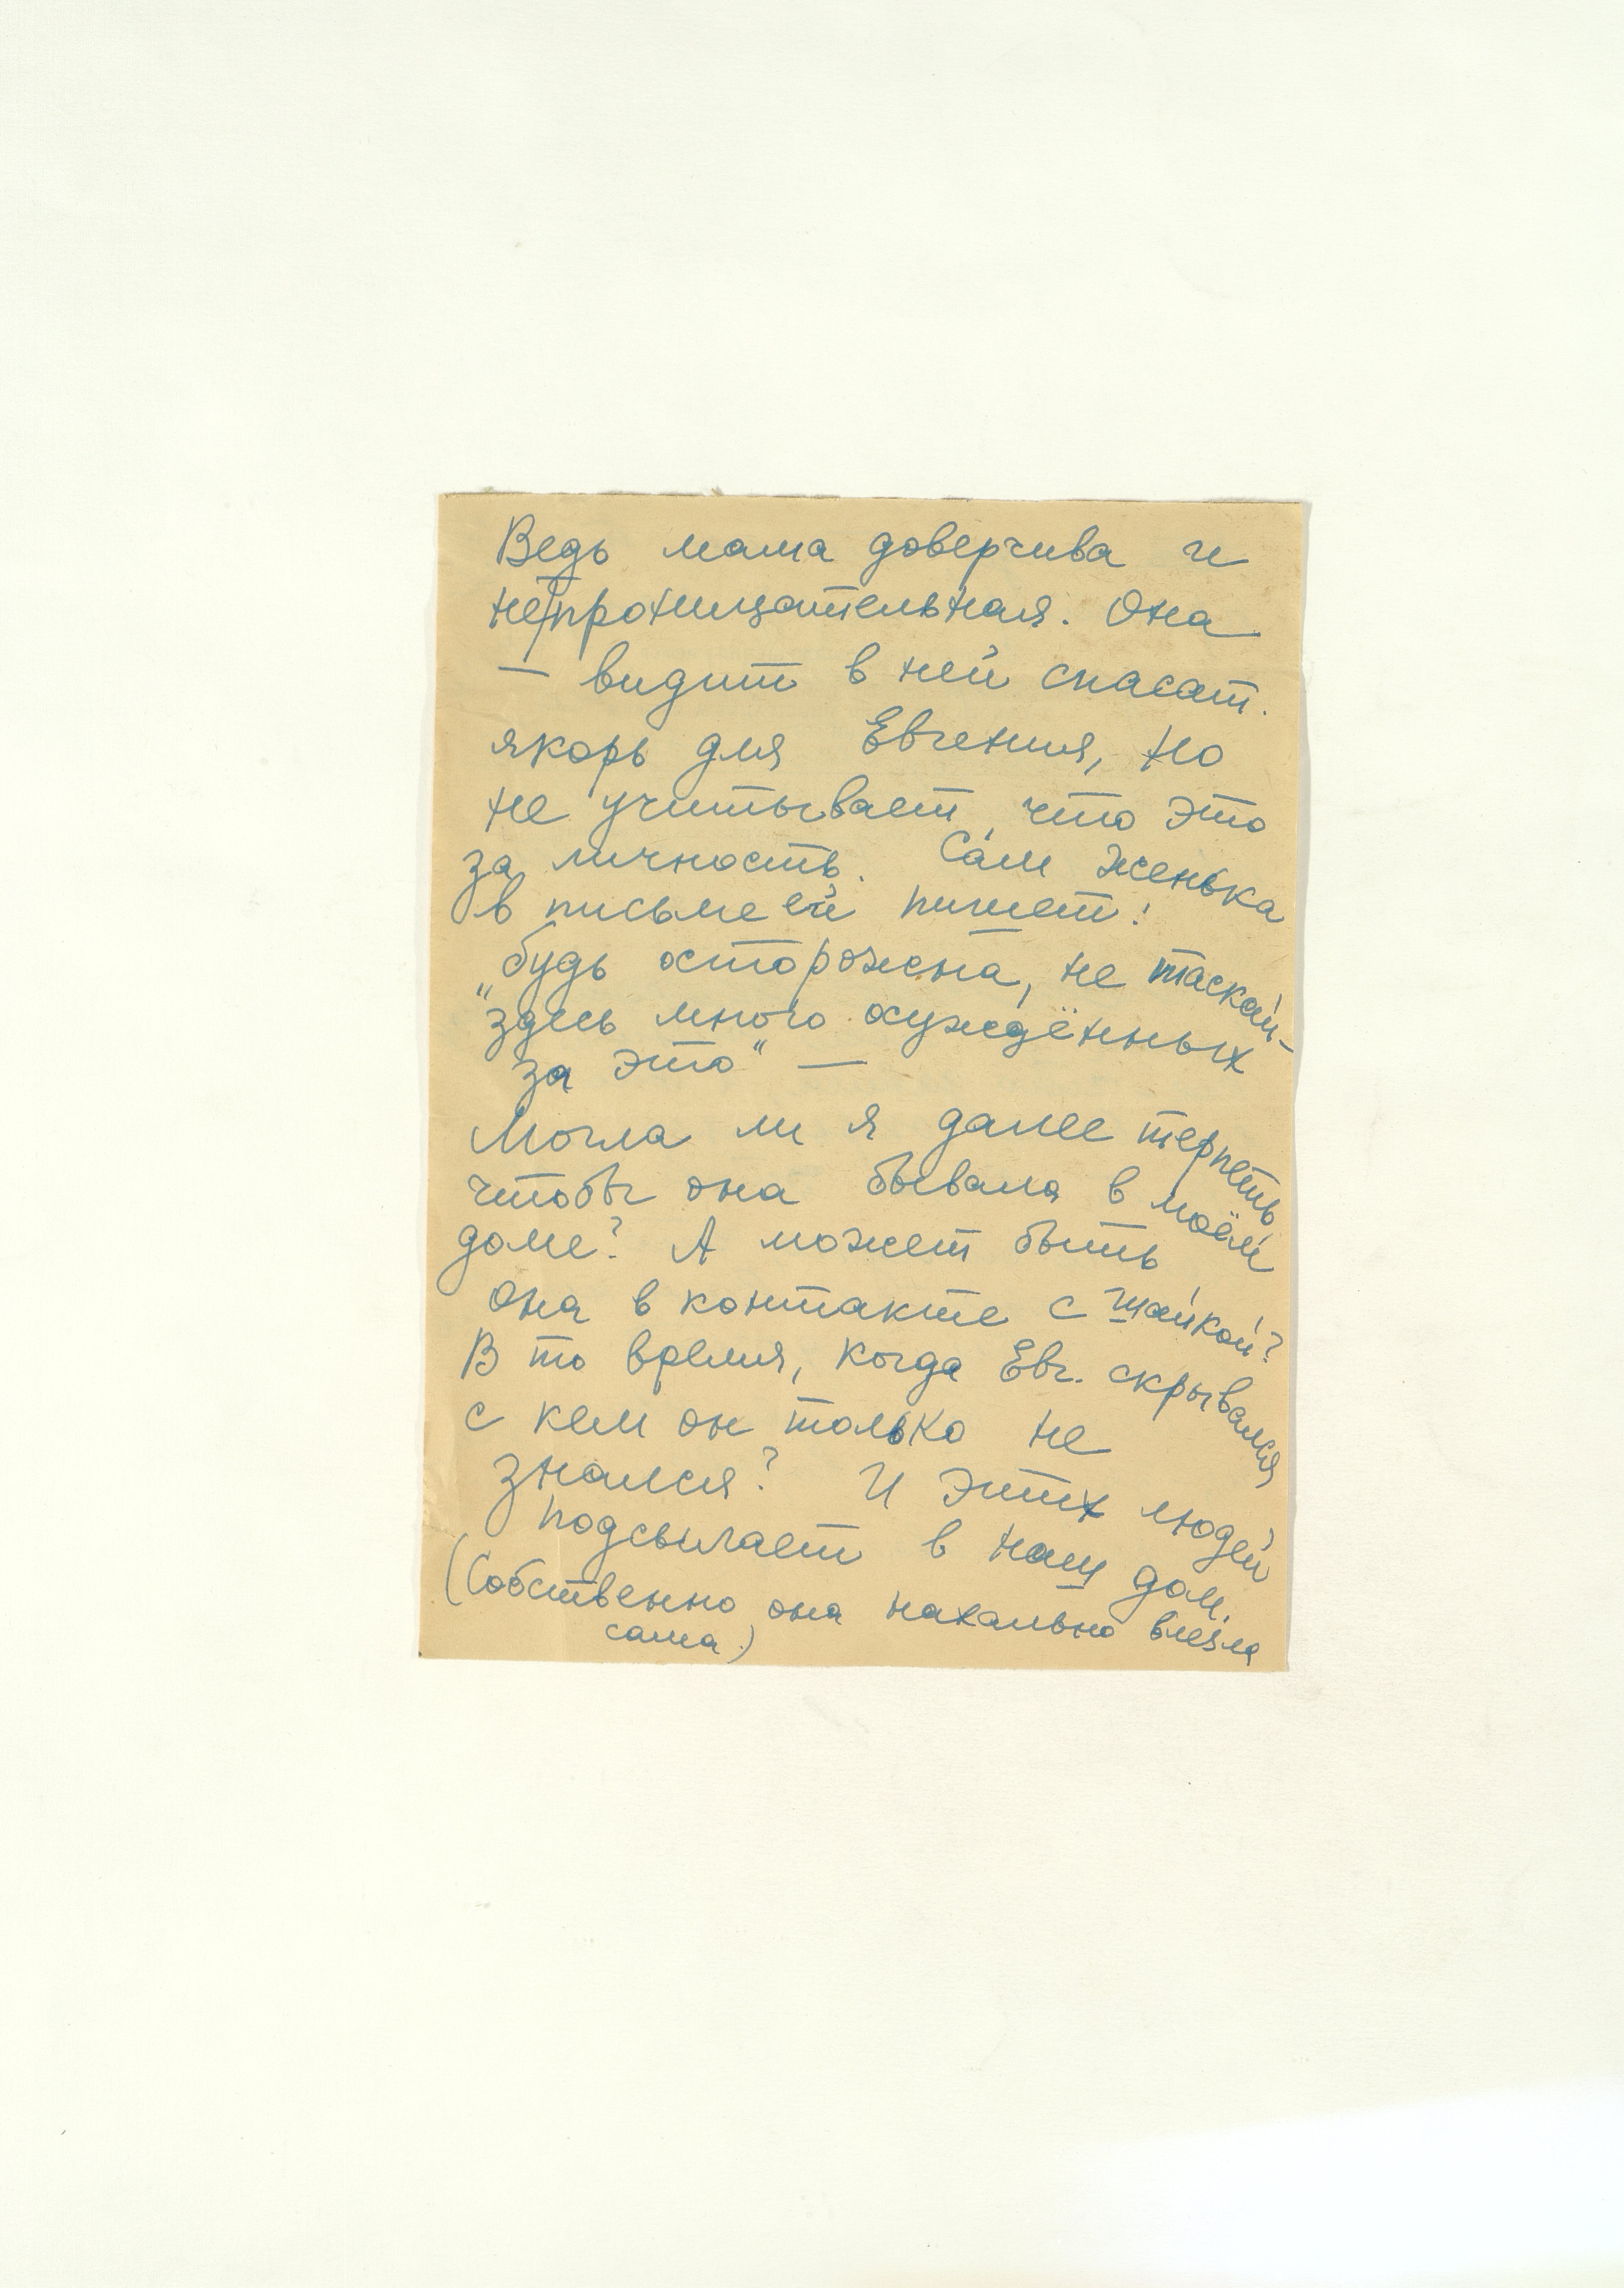 Ведь мама доверчива и
непроницательная. Она
— видит в ней спасат.
якорь для Евгения, но
не учитывает, что это
за личность. Сам Женька
в письме ей пишет:
„будь осторожна, не таскай –
„здесь много осуждённых
за это" —
Могла ли я далее терпеть
чтобы она бывала в моём
доме? А может быть
она в контакте с шайкой?
В то время, когда Евг. скрывался
с кем он только не
знался? И этих людей
подсылает в наш дом.
(Собственно она нахально влезла
сама.)